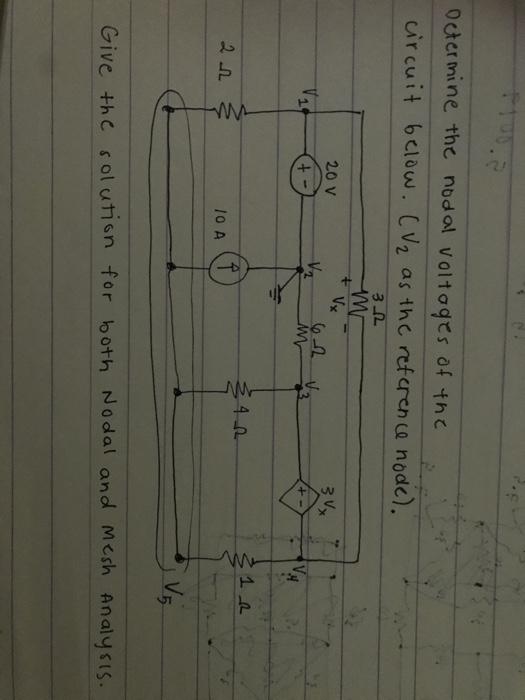 Determine the nodal voltages of the
circuit below. (V2 as the reference node).
3 Ω
+ Vx -
V1
20 V
+ -
V2
6 Ω
V3
3 Vx
+ -
V4
2 Ω
10 A
4 Ω
1 Ω
V5
Give the solution for both Nodal and Mesh Analysis.